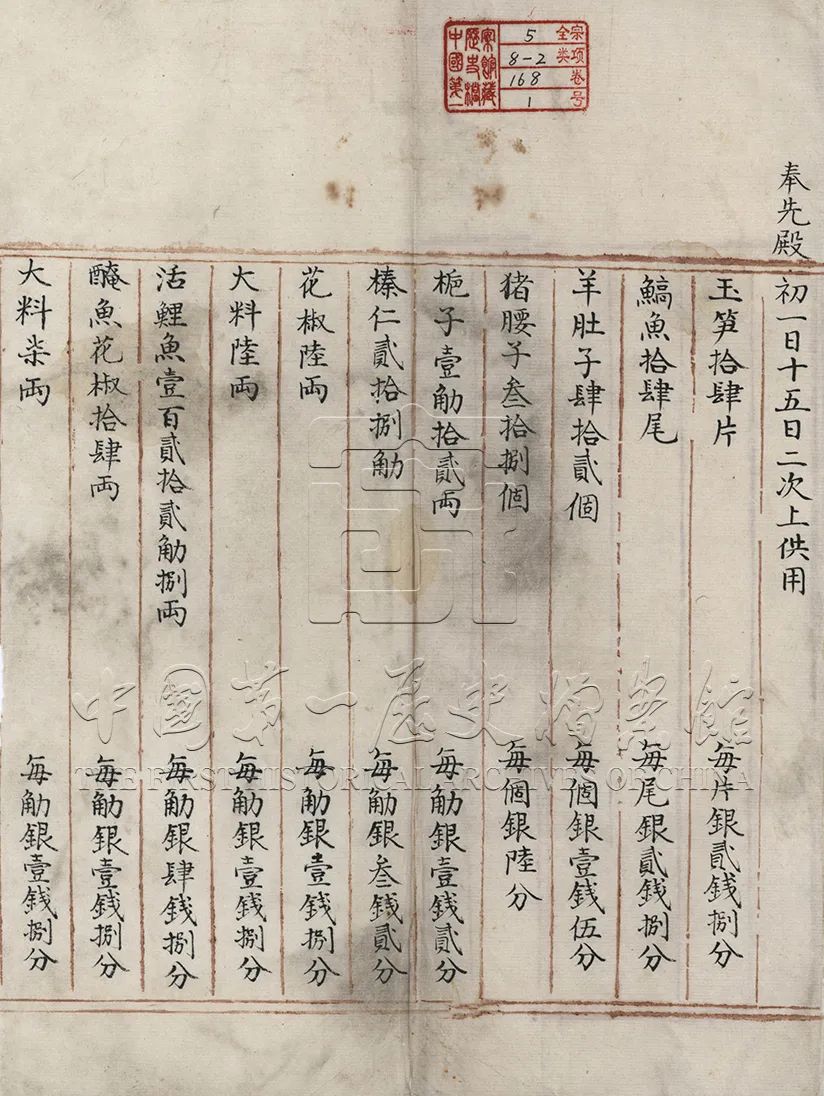 宗项卷号
全类
5
8-2
168
1
中國第一
歷史檔
案館藏
奉先殿
初一日十五日二次上供用
玉笋拾肆片 每片銀貳錢捌分
鰝魚拾肆尾 每尾銀貳錢捌分
羊肚子肆拾貳個 每個銀壹錢伍分
猪腰子叁拾捌個 每個銀陸分
栀子壹觔拾貳両 每觔銀壹錢貳分
榛仁貳拾捌觔 每觔銀叁錢貳分
花椒陸両 每觔銀壹錢捌分
大料陸両 每觔銀壹錢捌分
活鯉魚壹百貳拾貳觔捌両 每觔銀肆錢捌分
醃魚花椒拾肆両 每觔銀壹錢捌分
大料柒両 每觔銀壹錢捌分
中国第一歷史檔案館
THE FIRST HISTORICAL ARCHIVES OF CHINA